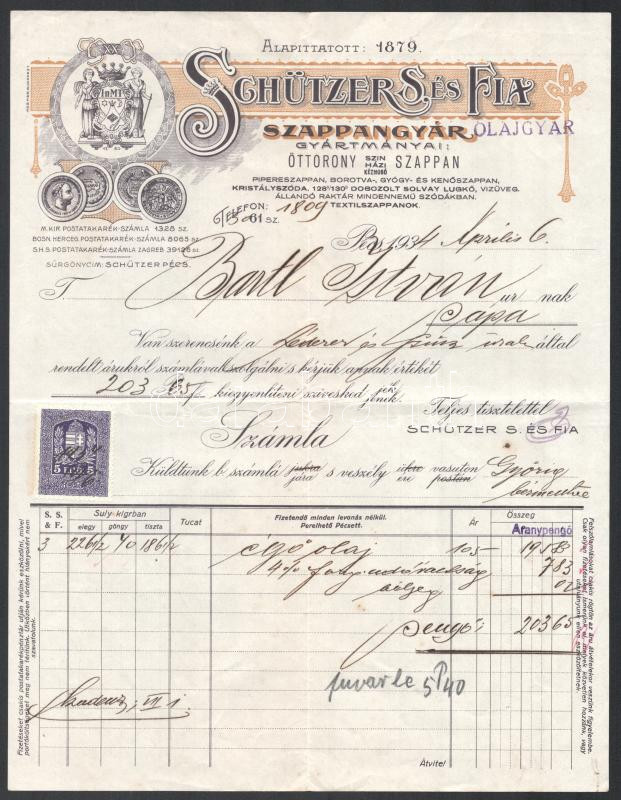 ALAPITTATOTT: 1879.
SCHÜTZER S. ÉS FIA
SZAPPANGYÁR OLAJGYAR
GYÁRTMÁNYAI:
ÖTTORONY SZIN HÁZI KÉZMOSÓ SZAPPAN
PIPERESZAPPAN, BOROTVA-, GYÓGY- ÉS KENŐSZAPPAN,
KRISTÁLYSZÓDA, 128°/130° DOBOZOLT SOLVAY LUGKŐ, VIZÜVEG.
ÁLLANDÓ RAKTÁR MINDENNEMŰ SZÓDÁKBAN.
TEXTILSZAPPANOK.
TELEFON: 1809
61 SZ.
M. KIR. POSTATAKARÉK-SZÁMLA 1328 SZ.
BOSN. HERCEG. POSTATAKARÉK-SZÁMLA 8065 SZ.
S.H.S. POSTATAKARÉK-SZÁMLA ZAGREB 39126 SZ.
SÜRGÖNYCIM: SCHÜTZER PÉCS.
Pécs, 1934 Április 6.
T. Bartl István ur nak
Pápa
Van szerencsénk a Lederer és urak által
rendelt árukról számlával szolgálni s kérjük annak értékét
203 P 65 f kiegyenliteni sziveskedjék jenék
Teljes tisztelettel
SCHÜTZER S. ÉS FIA
5 5
Számla
Küldtünk b. számlá jukra jára s veszély ükre ére vasuton postán Győrig
bérmentve
S. S. & F. Suly kigrban elegy göngy tiszta Tucat Fizetendő minden levonás nélkül. Perelhető Pécsett. Ár Összeg
Aranypengő
3 226 1/2 40 186 1/2 égő olaj 105 195 83
4% 7 83
pengő: 203 65
fuvar le 5 P 40
Átvitel
Fizetéseket csakis postatakarékpénztár utján kérünk eszközölni, mivel
portóköltségeket meg nem téritünk. Utközben történt hiányokért nem
szavatolunk.
Felszólamlásokat csakis rögtön az áru átvételekor veszünk figyelembe.
Csak olyan fizetéseket ismerünk el, melyek közvetlen hozzánk, vagy
utalványunk ellen eszközöltetnek.